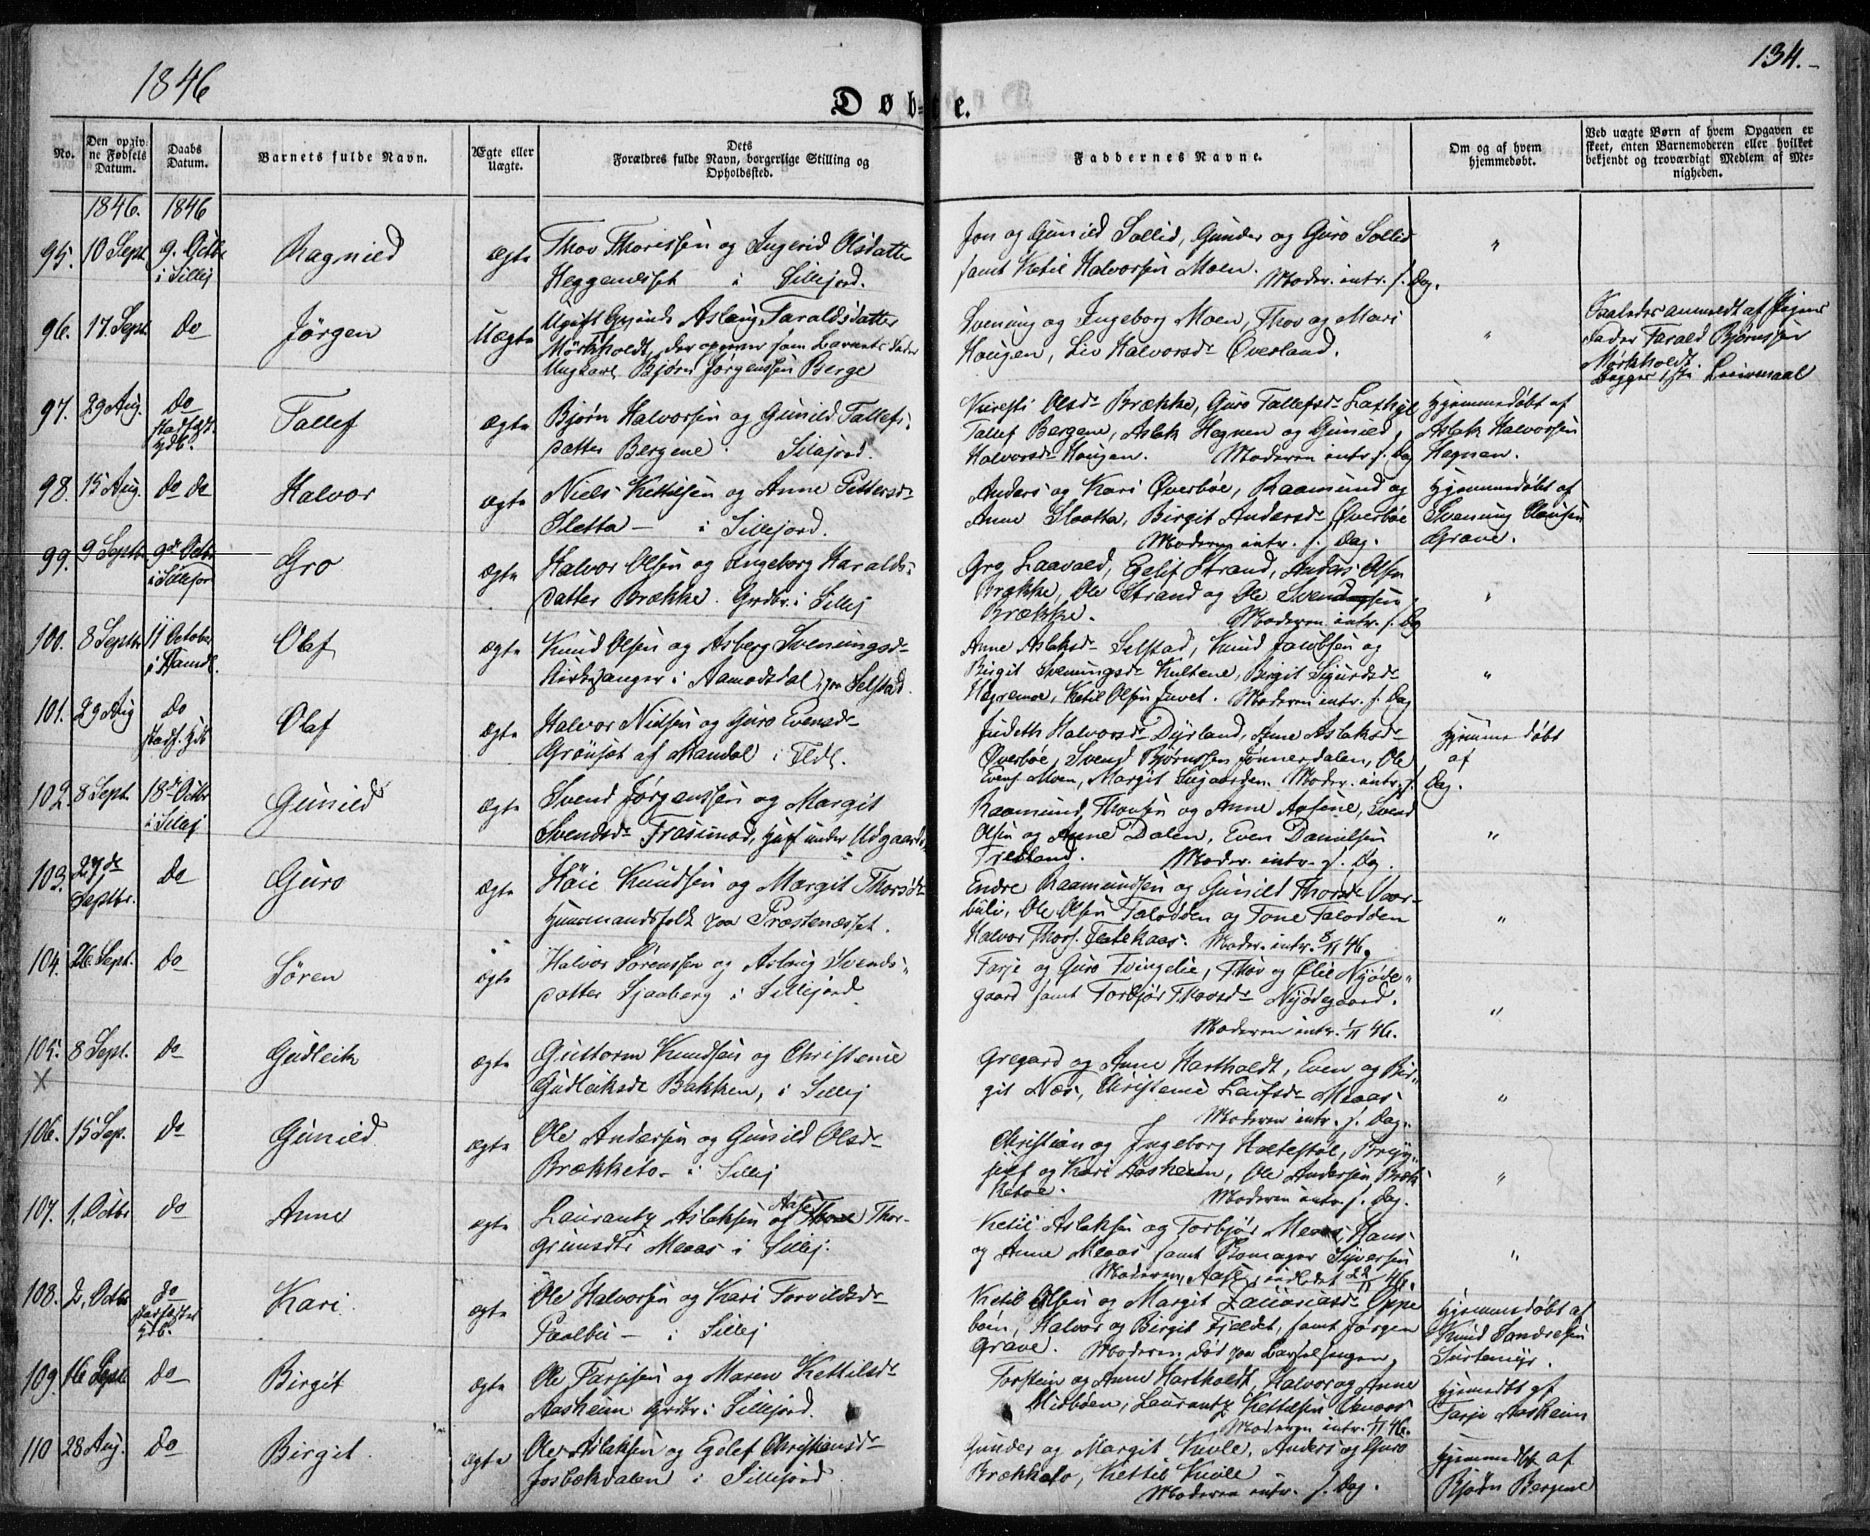 1846
134.
Døbte.
No.
Den opgivne Fødsels Datum.
Daabs Datum.
Barnets fulde Navn.
Ægte eller Uægte.
Dets Forældres fulde Navn, borgerlige Stilling og Opholdssted.
Faddernes Navne.
Om og af hvem hjemmedøbt.
Ved uægte Børn af hvem Opgaven er skeet, enten Barnemoderen eller hvilket bekjendt og troværdigt Medlem af Menigheden.
1846. 1846
95. 10 Sept. 9. Octbr i Sillej Ragnild ægte
Thov Thorissen og Ingerid Olsdatter
Heggeneset i Sillejord.
Jon og Gunild Sollid, Gunder og Guro Sollid
samt Ketil Halvorsen Moen. Moder. intr. s. Dag.
"
96. 17 Sept. do Jörgen Uægte
Ugift Aslaug Faraldsdatter
Mörkholdt, der opgiver som Barnets Fader
Ungkarl Bjørn Jørgenssen Berge
Svenung og Ingeborg Moen, Thov og Mari
Hougen, Liv Halvorsd. Överland.
"
anmeldt af Pigens
Fader Farald Bjørnssen
Mørkholdt.
Begges 1ste Leiermaal
97. 29 Aug. do stadfæst. hdb. Tallef ægte
Bjørn Halvorsen og Gunild Tallefs-
datter Bergene. Sillejord.
Olsd. Brække, Guro Tallefsd.
Tallef Bergene, Aslak Hegnen og Gunild
Halvorsd. Hougen. Moderen intr. s. Dag
Hjemmedøbt af
Aslak Halvorsen
Hegnen.
98. 15 Aug. do do Halvor ægte
Niels Kettilsen og Anne Pettersd.
Sletta — i Sillejord.
Anders og Kari Överböe, Raamund og
Anne Slaatta, Birgit Andersd. Överböe
Moderen intr. s. Dag.
Hjemmedøbt af
Svenung
Grave.
99. 9 Septbr 9de Octbr i Sillejor Gro ægte
Halvor Olsen og Ingeborg Haralds-
datter Brække. Grdbr. i Sillej
Gro Laavald, Egelif Strand, Anders Olsen
Brække, Ole Strand og Ole Svendssen
Brække. Moderen intr. s. Dag
"
100. 8 Septbr 11 October Olaf ægte
Knud Olsen og Asberg Svenungsd.
Kirkesanger i Aamodsdal, paa Selstad.
Anne Aslaksd. Selstad, Knud Jacobsen og
Birgit Svenungsd. Kultene, Birgit Sigurdsd.
Hegremoe, Ketil Olsen Juvet. Moderen intr. s. Dag
"
101. 29 Aug do stadf. hdb Olaf ægte
Halvor Nielsen og Guro Evensd.
Grönset af Mandal i Fldl.
Judeth Halvorsd. Dyrland, Anne Aslaksd.
Överböe, Svend Bjørnssen Jønnerdalen, Ole
Evens. Moen, Margit Moder. intr. s. Dag.
Hjemmedøbt
af
102. 8 Sept. 18de Octbr i Sillej Gunild ægte
Svend Jørgenssen og Margit
Svendsd. Frasimod, Husf. under Udgaarden
Raamund Thovsen og Anne Aasene, Svend
Olsen og Anne Dalen, Even Danielsen
Moder. intr. s. Dag.
"
103. 27de Septbr. do Guro ægte
Höie Knudsen og Margit Thorsd.
Huusmandsfolk paa Præstenæsset.
Endre Raamundsen og Gunild Thorsd. Vaar-
buli, Ole Olsen Talodden og Tone Talodden
Halvor Thors. Moder. intr. 8/11 46.
"
104. 26 Sept. do Sören ægte
Halvor Sörenssen og Aslaug Svends-
datter Sjaaberg i Sillejord.
Tarje og Guro Tvingelie, Thov og Ölie Nyöde-
gaard samt Torbjör Thovsd. Nyödegaard.
Moderen intr. 1/11 46.
"
105. 8 Sept. do Gudleik ægte
X
Guttorm Knudsen og Christense
Gudleiksd. Bakken, i Sillej
Gregard og Anne Hartholdt, Even og Bir-
git Næs, Christense Leifsd. Meaas
Moderen intr. s. Dag.
"
106. 15 Sep. do Gunild ægte
Ole Andersen og Gunild Olsd.
Brækketo i Sillej
Christian og Ingeborg Holtestöl, Bryn-
julf og Kari Aasheim, Ole Andersen Bræk-
ketoe. Moderen intr. s. Dag.
"
107. 1. Octbr do Anne ægte
Laurantz Aslaksen og Aase Thor-
grimsdtr Meaas i Sillej.
Ketil Aslaksen og Torbjör Meaas, Hans
og Anne Meaas samt Romager Syversen
Moderen, Aase, indledet 22/11 46.
"
108. 2. Octbr do stadfæstet hdb. Kari ægte
Ole Halvorsen og Kari Torvildsd.
Paalbu — i Sillej
Ketil Olsen og Margit Zachariasd. Oppe
böen, Halvor og Birgit Fjeldet, samt Jørgen
Grave. Moderen død paa Barselsengen.
Hjemmedøbt af
Knud Sondresen
Surtemyr.
109. 16 Sept. do Birgit ægte
Ole Tarjesen og Maren Kettilsd.
Aasheim Grdbr. i Sillejord.
Torstein og Anne Hartholdt, Halvor og Anne
Midböen, Laurantz Kettilsen
Moderen intr. 1/11 46.
Hjemmedbt af
Tarje Aasheim
110 28 Aug. do Birgit. ægte
Ole Aslaksen og Egelef Christiansd.
Josbækdalen i Sillejord.
Gunder og Margit Kivle, Anders og Guro
Brækketo, Kettil Kivle
Moderen intr. s. Dag.
Hjemmedbt af
Bjørn Bergene